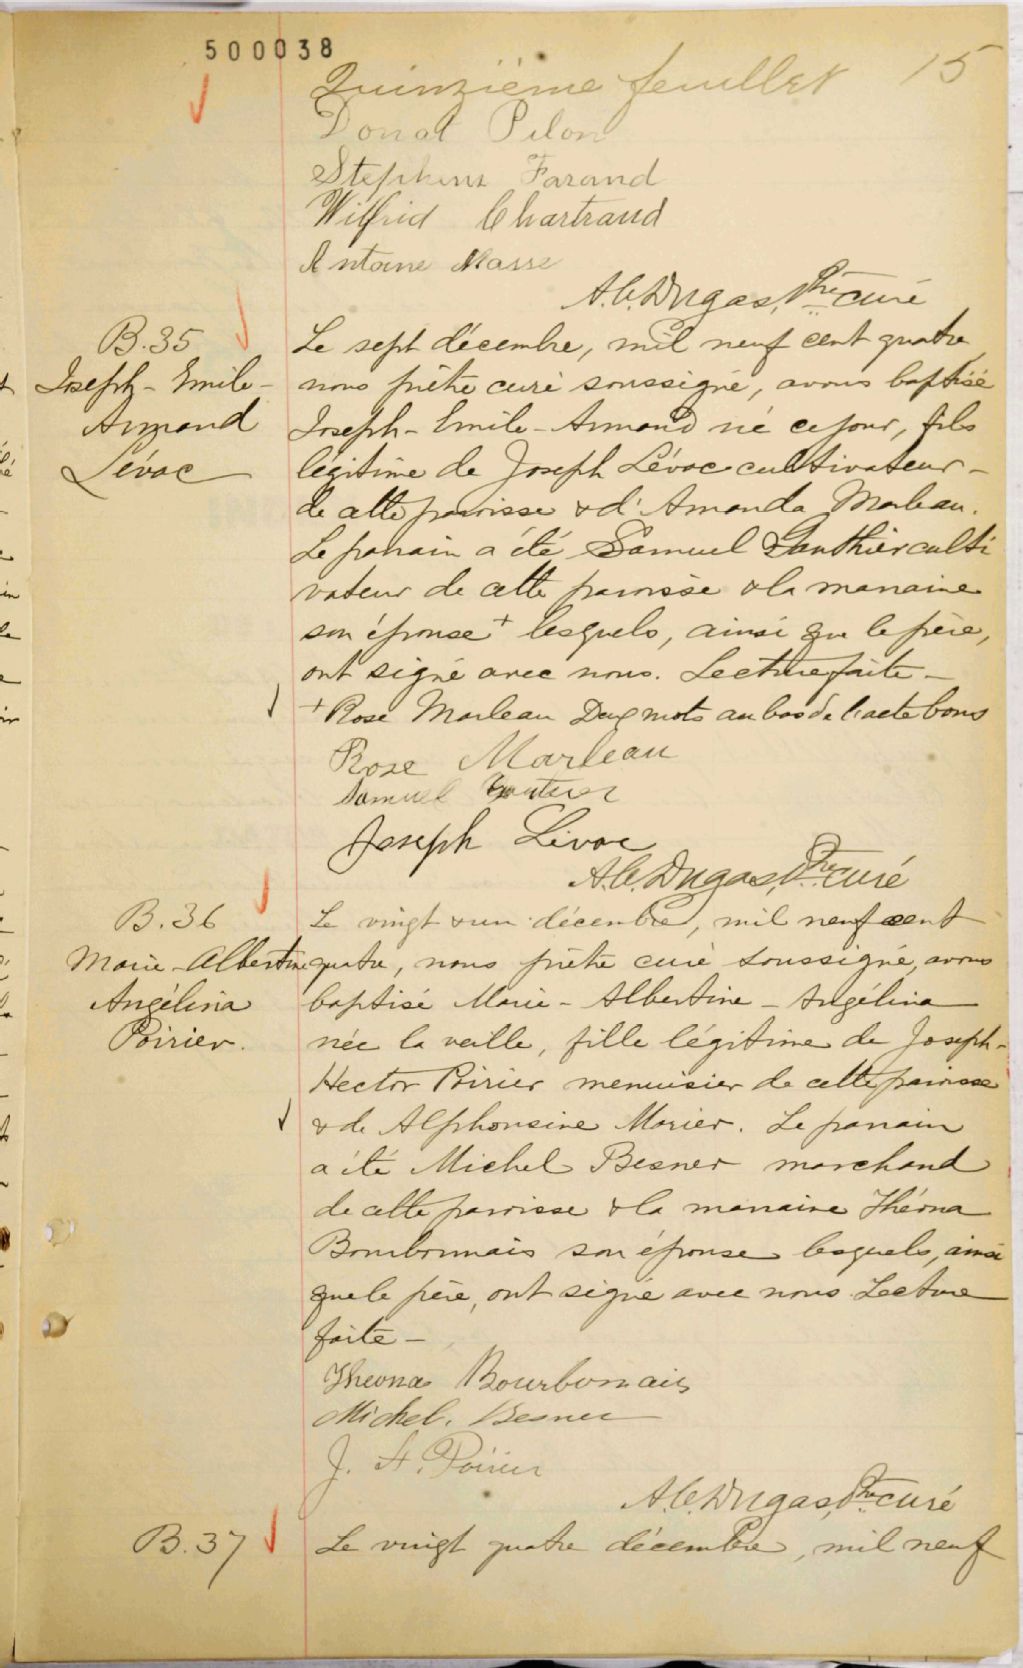 500038
Quinzième feuillet 15
Donat Pilon
Stephens Farand
Wilfrid Chartrand
Antoine Masse
A.C. Dugas, Ptre curé
B.35
Joseph-Emile-
Armand
Lévac
Le sept décembre, mil neuf cent quatre
nous prêtre curé soussigné, avons baptisé
Joseph-Emile-Armand né ce jour, fils
légitime de Joseph Lévac cultivateur-
de cette paroisse & d'Amanda Marleau.
Le parrain a été Samuel Gauthier culti
vateur de cette paroisse & la marraine
son épouse + lesquels, ainsi que le père,
ont signé avec nous. Lecture faite-
+ Rose Marleau Deux mots au bas de l'acte bons
Rose Marleau
Samuel Gautier
Joseph Livac
A.C. Dugas, Ptre curé
B.36
Marie-Albertine
Angélina
Poirier.
Le vingt & un décembre, mil neuf cent
quatre, nous prêtre curé soussigné, avons
baptisé Marie-Albertine-Angélina
née la veille, fille légitime de Joseph-
Hector Poirier menuisier de cette paroisse
& de Alphonsine Morier. Le parrain
a été Michel Besner marchand
de cette paroisse & la marraine Théona
Bourbonnais son épouse lesquels, ainsi
que le père, ont signé avec nous Lecture
faite-
Theona Bourbonnais
Michel. Besner
J. H. Poirier
A.C. Dugas, Ptre curé
B.37
Le vingt quatre décembre, mil neuf